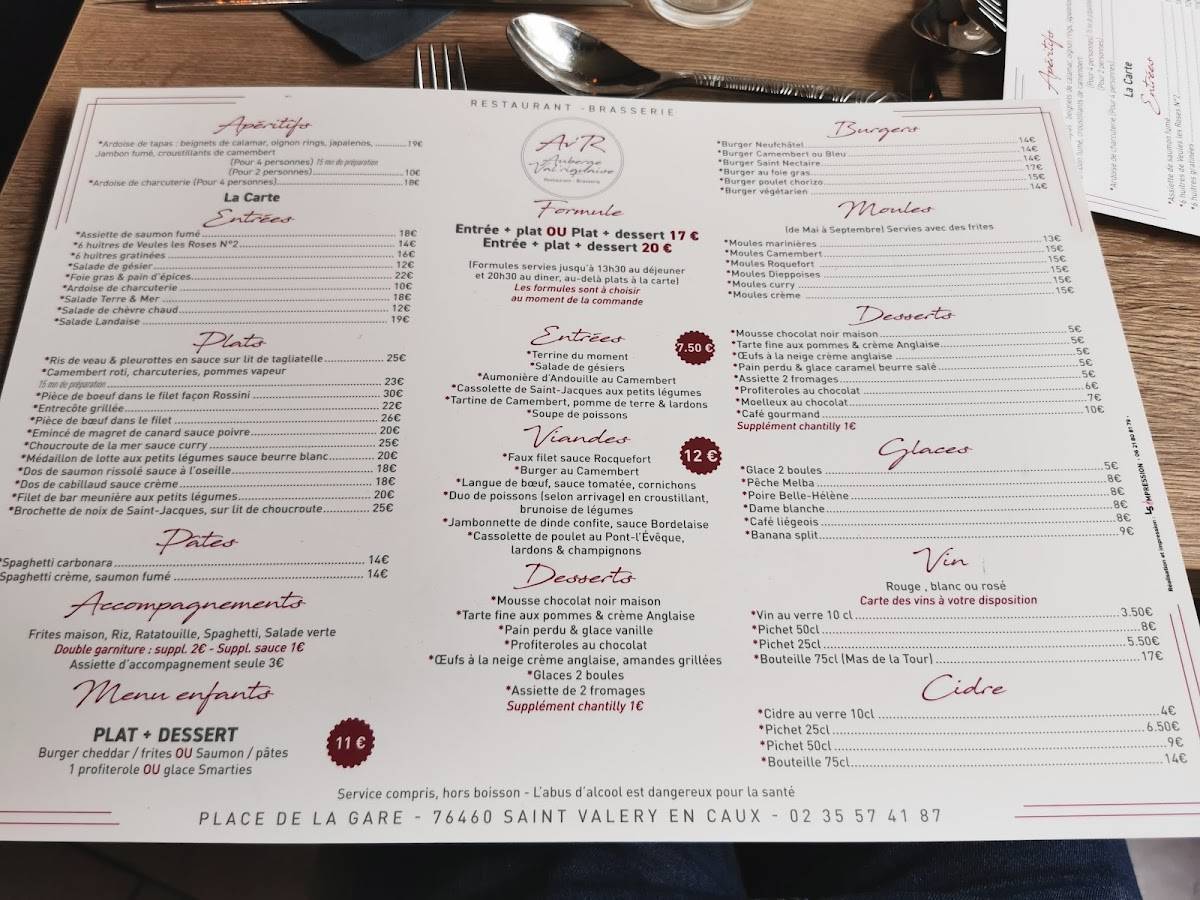 RESTAURANT - BRASSERIE
AV'R
Auberge
Val'rigolaise
Restaurant - Brasserie
Apéritifs
*Ardoise de tapas : beignets de calamar, oignon rings, japalenos, 19€
Jambon fumé, croustillants de camembert
(Pour 4 personnes) 15 mn de préparation
(Pour 2 personnes) 10€
*Ardoise de charcuterie (Pour 4 personnes) 18€
La Carte
Entrées
*Assiette de saumon fumé 18€
*6 huîtres de Veules les Roses N°2 14€
*6 huîtres gratinées 16€
*Salade de gésier 12€
*Foie gras & pain d'épices 22€
*Ardoise de charcuterie 10€
*Salade Terre & Mer 18€
*Salade de chèvre chaud 12€
*Salade Landaise 19€
Plats
*Ris de veau & pleurottes en sauce sur lit de tagliatelle 25€
*Camembert roti, charcuteries, pommes vapeur
15 mn de préparation 23€
*Pièce de bœuf dans le filet façon Rossini 30€
*Entrecôte grillée 22€
*Pièce de bœuf dans le filet 26€
*Emincé de magret de canard sauce poivre 20€
*Choucroute de la mer sauce curry 25€
*Médaillon de lotte aux petits légumes sauce beurre blanc 20€
*Dos de saumon rissolé sauce à l'oseille 18€
*Dos de cabillaud sauce crème 18€
*Filet de bar meunière aux petits légumes 20€
*Brochette de noix de Saint-Jacques, sur lit de choucroute 25€
Pâtes
*Spaghetti carbonara 14€
Spaghetti crème, saumon fumé 14€
Accompagnements
Frites maison, Riz, Ratatouille, Spaghetti, Salade verte
Double garniture : suppl. 2€ - Suppl. sauce 1€
Assiette d'accompagnement seule 3€
Menu enfants
PLAT + DESSERT
Burger cheddar / frites OU Saumon / pâtes
1 profiterole OU glace Smarties
11 €
Formule
Entrée + plat OU Plat + dessert 17 €
Entrée + plat + dessert 20 €
(Formules servies jusqu'à 13h30 au déjeuner
et 20h30 au diner, au-delà plats à la carte)
Les formules sont à choisir
au moment de la commande
Entrées
7.50 €
*Terrine du moment
*Salade de gésiers
*Aumonière d'Andouille au Camembert
*Cassolette de Saint-Jacques aux petits légumes
*Tartine de Camembert, pomme de terre & lardons
*Soupe de poissons
Viandes
12 €
*Faux filet sauce Rocquefort
*Burger au Camembert
*Langue de bœuf, sauce tomatée, cornichons
*Duo de poissons (selon arrivage) en croustillant,
brunoise de légumes
*Jambonnette de dinde confite, sauce Bordelaise
*Cassolette de poulet au Pont-l'Évêque,
lardons & champignons
Desserts
*Mousse chocolat noir maison
*Tarte fine aux pommes & crème Anglaise
*Pain perdu & glace vanille
*Profiteroles au chocolat
*Œufs à la neige crème anglaise, amandes grillées
*Glaces 2 boules
*Assiette de 2 fromages
Supplément chantilly 1€
Burgers
*Burger Neufchâtel 14€
*Burger Camembert ou Bleu 14€
*Burger Saint Neclaire 14€
*Burger au foie gras 17€
*Burger poulet chorizo 15€
*Burger végétarien 14€
Moules
(de Mai à Septembre) Servies avec des frites
*Moules marinières 13€
*Moules Camembert 15€
*Moules Roquefort 15€
*Moules Dieppoises 15€
*Moules curry 15€
*Moules crème 15€
Desserts
*Mousse chocolat noir maison 5€
*Tarte fine aux pommes & crème Anglaise 5€
*Œufs à la neige crème anglaise 5€
*Pain perdu & glace caramel beurre salé 5€
*Assiette 2 fromages 5€
*Profiteroles au chocolat 6€
*Moelleux au chocolat 7€
*Café gourmand 10€
Supplément chantilly 1€
Glaces
*Glace 2 boules 5€
*Pêche Melba 8€
*Poire Belle-Hélène 8€
*Dame blanche 8€
*Café liégeois 8€
*Banana split 9€
Vin
Rouge , blanc ou rosé
Carte des vins à votre disposition
*Vin au verre 10 cl 3.50€
*Pichet 50cl 8€
*Pichet 25cl 5.50€
*Bouteille 75cl (Mas de la Tour) 17€
Cidre
*Cidre au verre 10cl 4€
*Pichet 25cl 6.50€
*Pichet 50cl 9€
*Bouteille 75cl 14€
Réalisation et impression : LS IMPRESSION - 06 21 80 81 79 -
Service compris, hors boisson - L'abus d'alcool est dangereux pour la santé
PLACE DE LA GARE - 76460 SAINT VALERY EN CAUX - 02 35 57 41 87
Apéritifs
(Pour 4 personnes)
(Pour 2 personnes)
*Ardoise de charcuterie (Pour 4 personnes)
La Carte
Entrées
*Assiette de saumon fumé
*6 huîtres de Veules les Roses N°2
*6 huîtres gratinées